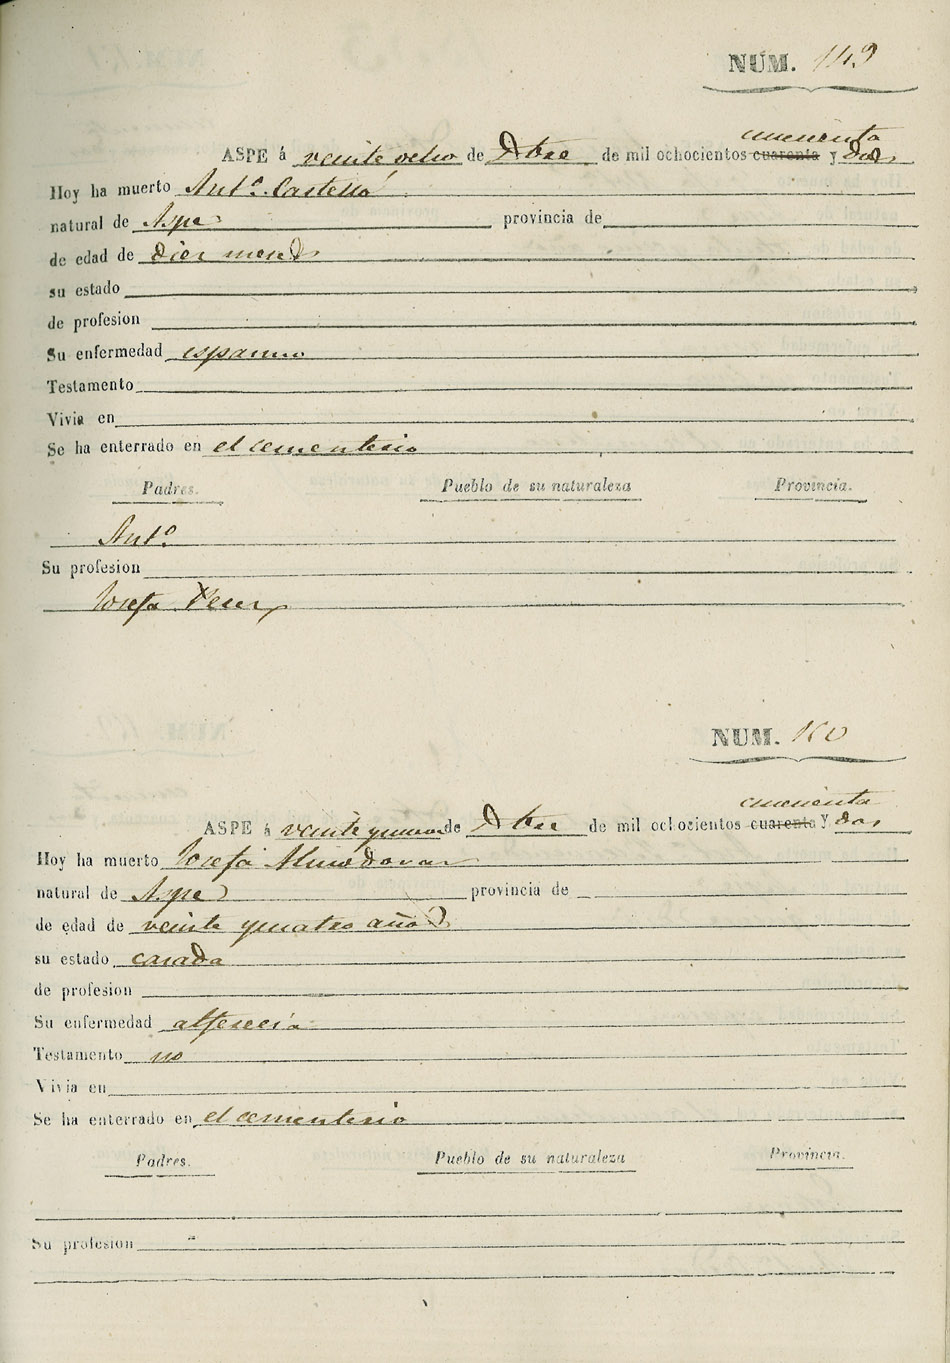 NÚM. 149
cincuenta
ASPE á veinte ocho de Dbre de mil ochocientos cuarenta y dos
Hoy ha muerto Antº Castelló
natural de Aspe provincia de
de edad de diez meses
su estado
de profesion
Su enfermedad espasmo
Testamento
Vivia en
Se ha enterrado en el cementerio
Padres. Pueblo de su naturaleza Provincia.
Antº
Su profesion
Josefa Perez
NUM. 150
cincuenta
ASPE á veinte y nueve de Dbre de mil ochocientos cuarenta y dos
Hoy ha muerto Josefa Almodovar
natural de Aspe provincia de
de edad de veinte y cuatro años
su estado casada
de profesion
Su enfermedad alferecia
Testamento no
Vivia en
Se ha enterrado en el cementerio
Padres. Pueblo de su naturaleza Provincia.
Su profesion